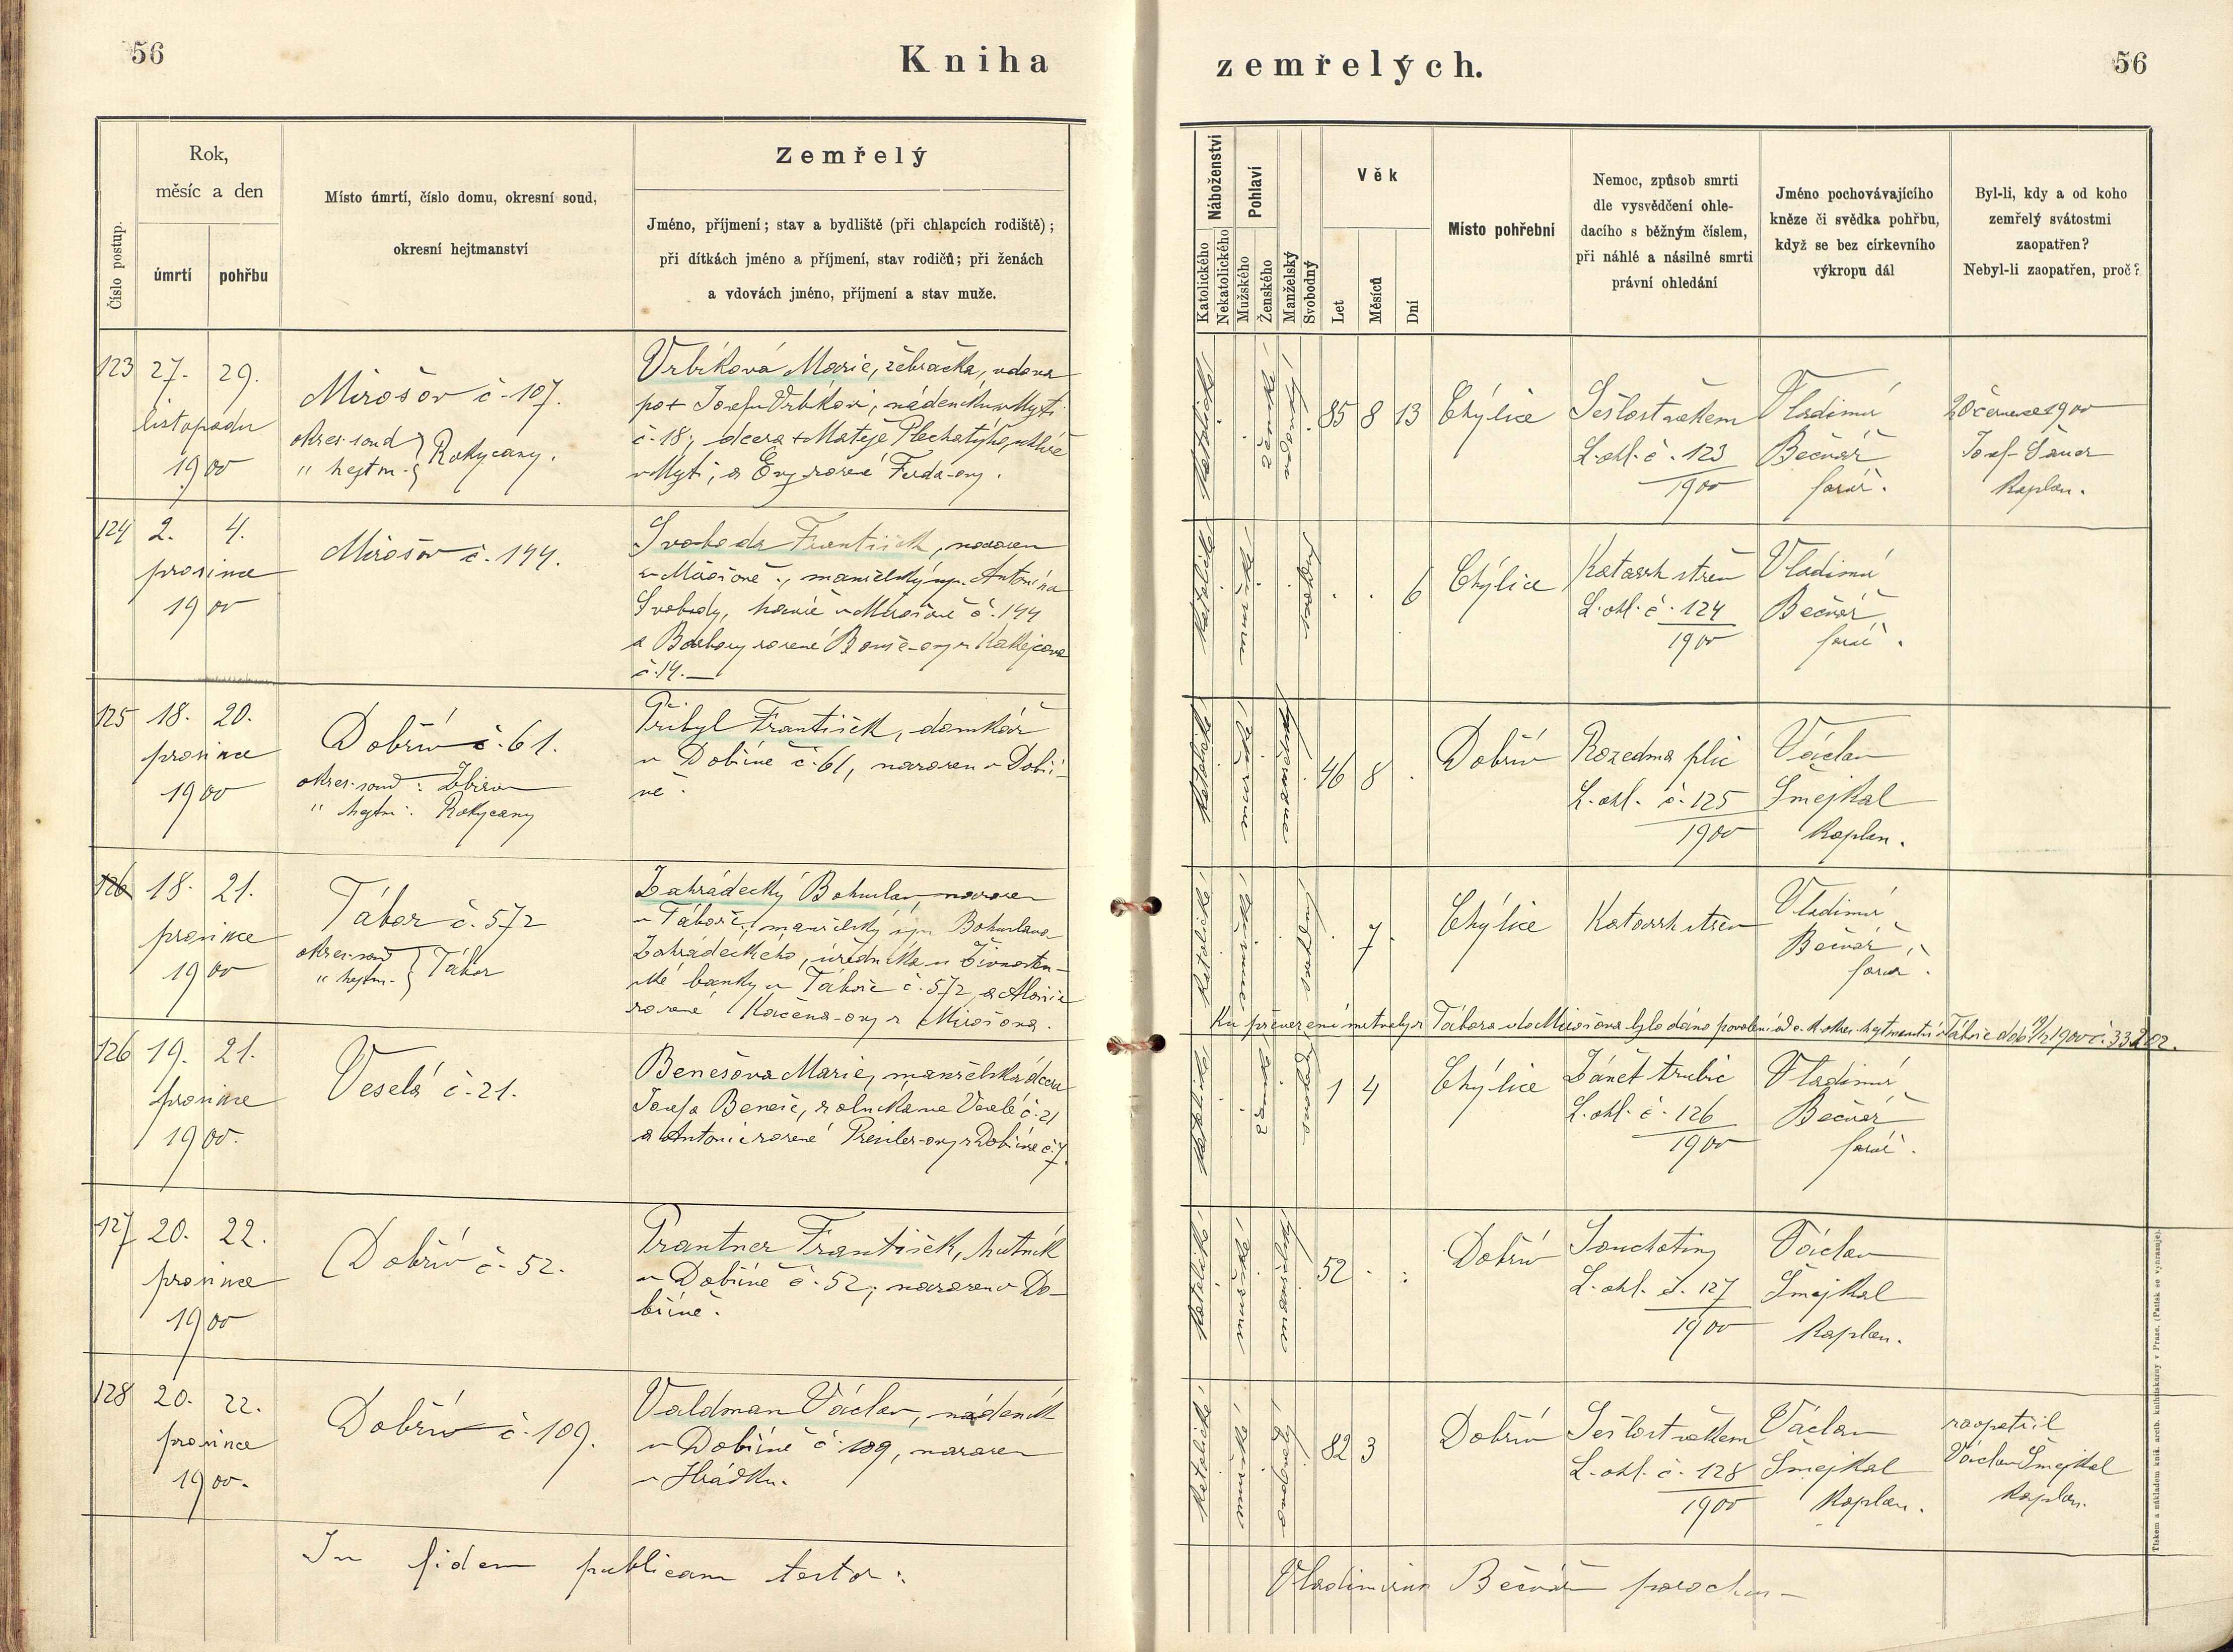 56
Kniha
zemřelých.
56
Číslo postup.
Rok,
měsíc a den
úmrtí
pohřbu
Místo úmrtí, číslo domu, okresní soud,
okresní hejtmanství
Zemřelý
Jméno, příjmení; stav a bydliště (při chlapcích rodiště);
při dítkách jméno a příjmení, stav rodičů; při ženách
a vdovách jméno, příjmení a stav muže.
Náboženství
Katolického
Nekatolického
Pohlaví
Mužského
Ženského
Manželský
Svobodný
Věk
Let
Měsíců
Dní
Místo pohřební
Nemoc, způsob smrti
dle vysvědčení ohle-
dacího s běžným číslem,
při náhlé a násilné smrti
právní ohledání
Jméno pochovávajícího
kněze či svědka pohřbu,
když se bez církevního
výkropu dál
Byl-li, kdy a od koho
zemřelý svátostmi
zaopatřen?
Nebyl-li zaopatřen, proč?
123
27. 29.
listopadu
1900
Mirošov č. 107.
okres. soud
" hejtm. } Rokycany.
Vrbíková Marie, žebračka, vdova
po + Josefu Vrbíkovi, nádeníku v Mýti
č. 18; dcera + Matěje Plechatýho,
v Mýti, a Evy rozené
katolické
ženské
85 8 13
Chýlice
Sešlost věkem
L. ohl. č. 123
1900
Vladimír
Bečvář
farář.
20 července 1900
Josef
kaplan.
124
2. 4.
prosince
1900
Mirošov č. 144.
Svoboda František, narozen
v Mirošově, manželský syn Antonína
Svobody, havíře v Mirošově č. 144
a Barbory rozené z
č. 14.
katolické
mužské
6
Chýlice
Katarrh střev
L. ohl. č. 124
1900
Vladimír
Bečvář
farář.
125
18. 20.
prosince
1900
Dobřív č. 61.
okres. soud: Zbirov
" hejtm.: Rokycany
Přibyl František, domkář
v Dobřívě č. 61, narozen v Dobří-
vě.
katolické
mužské
46 8
Dobřív
Rozedma plic
L. ohl. č. 125
1900
Václav
Šmejkal
kaplan.
126
18. 21.
prosince
1900
Tábor č. 572
okres. soud
" hejtm. } Tábor
Zahrádecký Bohuslav, narozen
v Táboře, manželský syn Bohuslava
Zahrádeckého, úředníka u Živnosten-
ské banky v Táboře č. 572, a Marie
rozené Kačena-ovy z Mirošova.
katolické
mužské
7
Chýlice
Katarrh střev
Vladimír
Bečvář,
farář.
Ku převezení mrtvoly z Tábora do Mirošova bylo dáno povolení od c. k. okres. hejtmanství v Táboře
126
19. 21.
prosince
1900.
Veselá č. 21.
Benešova Marie, manželská dcera
Josefa Beneše, rolníka ve Veselé č. 21
a Antonie rozené z Dobřívě č. 7.
katolické
ženské
1 4
Chýlice
Zánět trubic
L. ohl. č. 126
1900
Vladimír
Bečvář
farář.
127
20. 22.
prosince
1900
Dobřív č. 52.
Prantner František, hutník
v Dobřívě č. 52; narozen v Do-
břívě.
katolické
mužské
52
Dobřív
Souchotiny
L. ohl. č. 127
1900
Václav
Šmejkal
kaplan.
128
20. 22.
prosince
1900.
Dobřív č. 109.
Valdman Václav, nádeník
v Dobřívě č. 109, narozen
v Hrádku.
katolické
mužské
82 3
Dobřív
Sešlost věkem
L. ohl. č. 128
1900
Václav
Šmejkal
kaplan.
zaopatřil
Václav Šmejkal
kaplan.
In fidem publicam testor:
Vladimirus Bečvář parochus